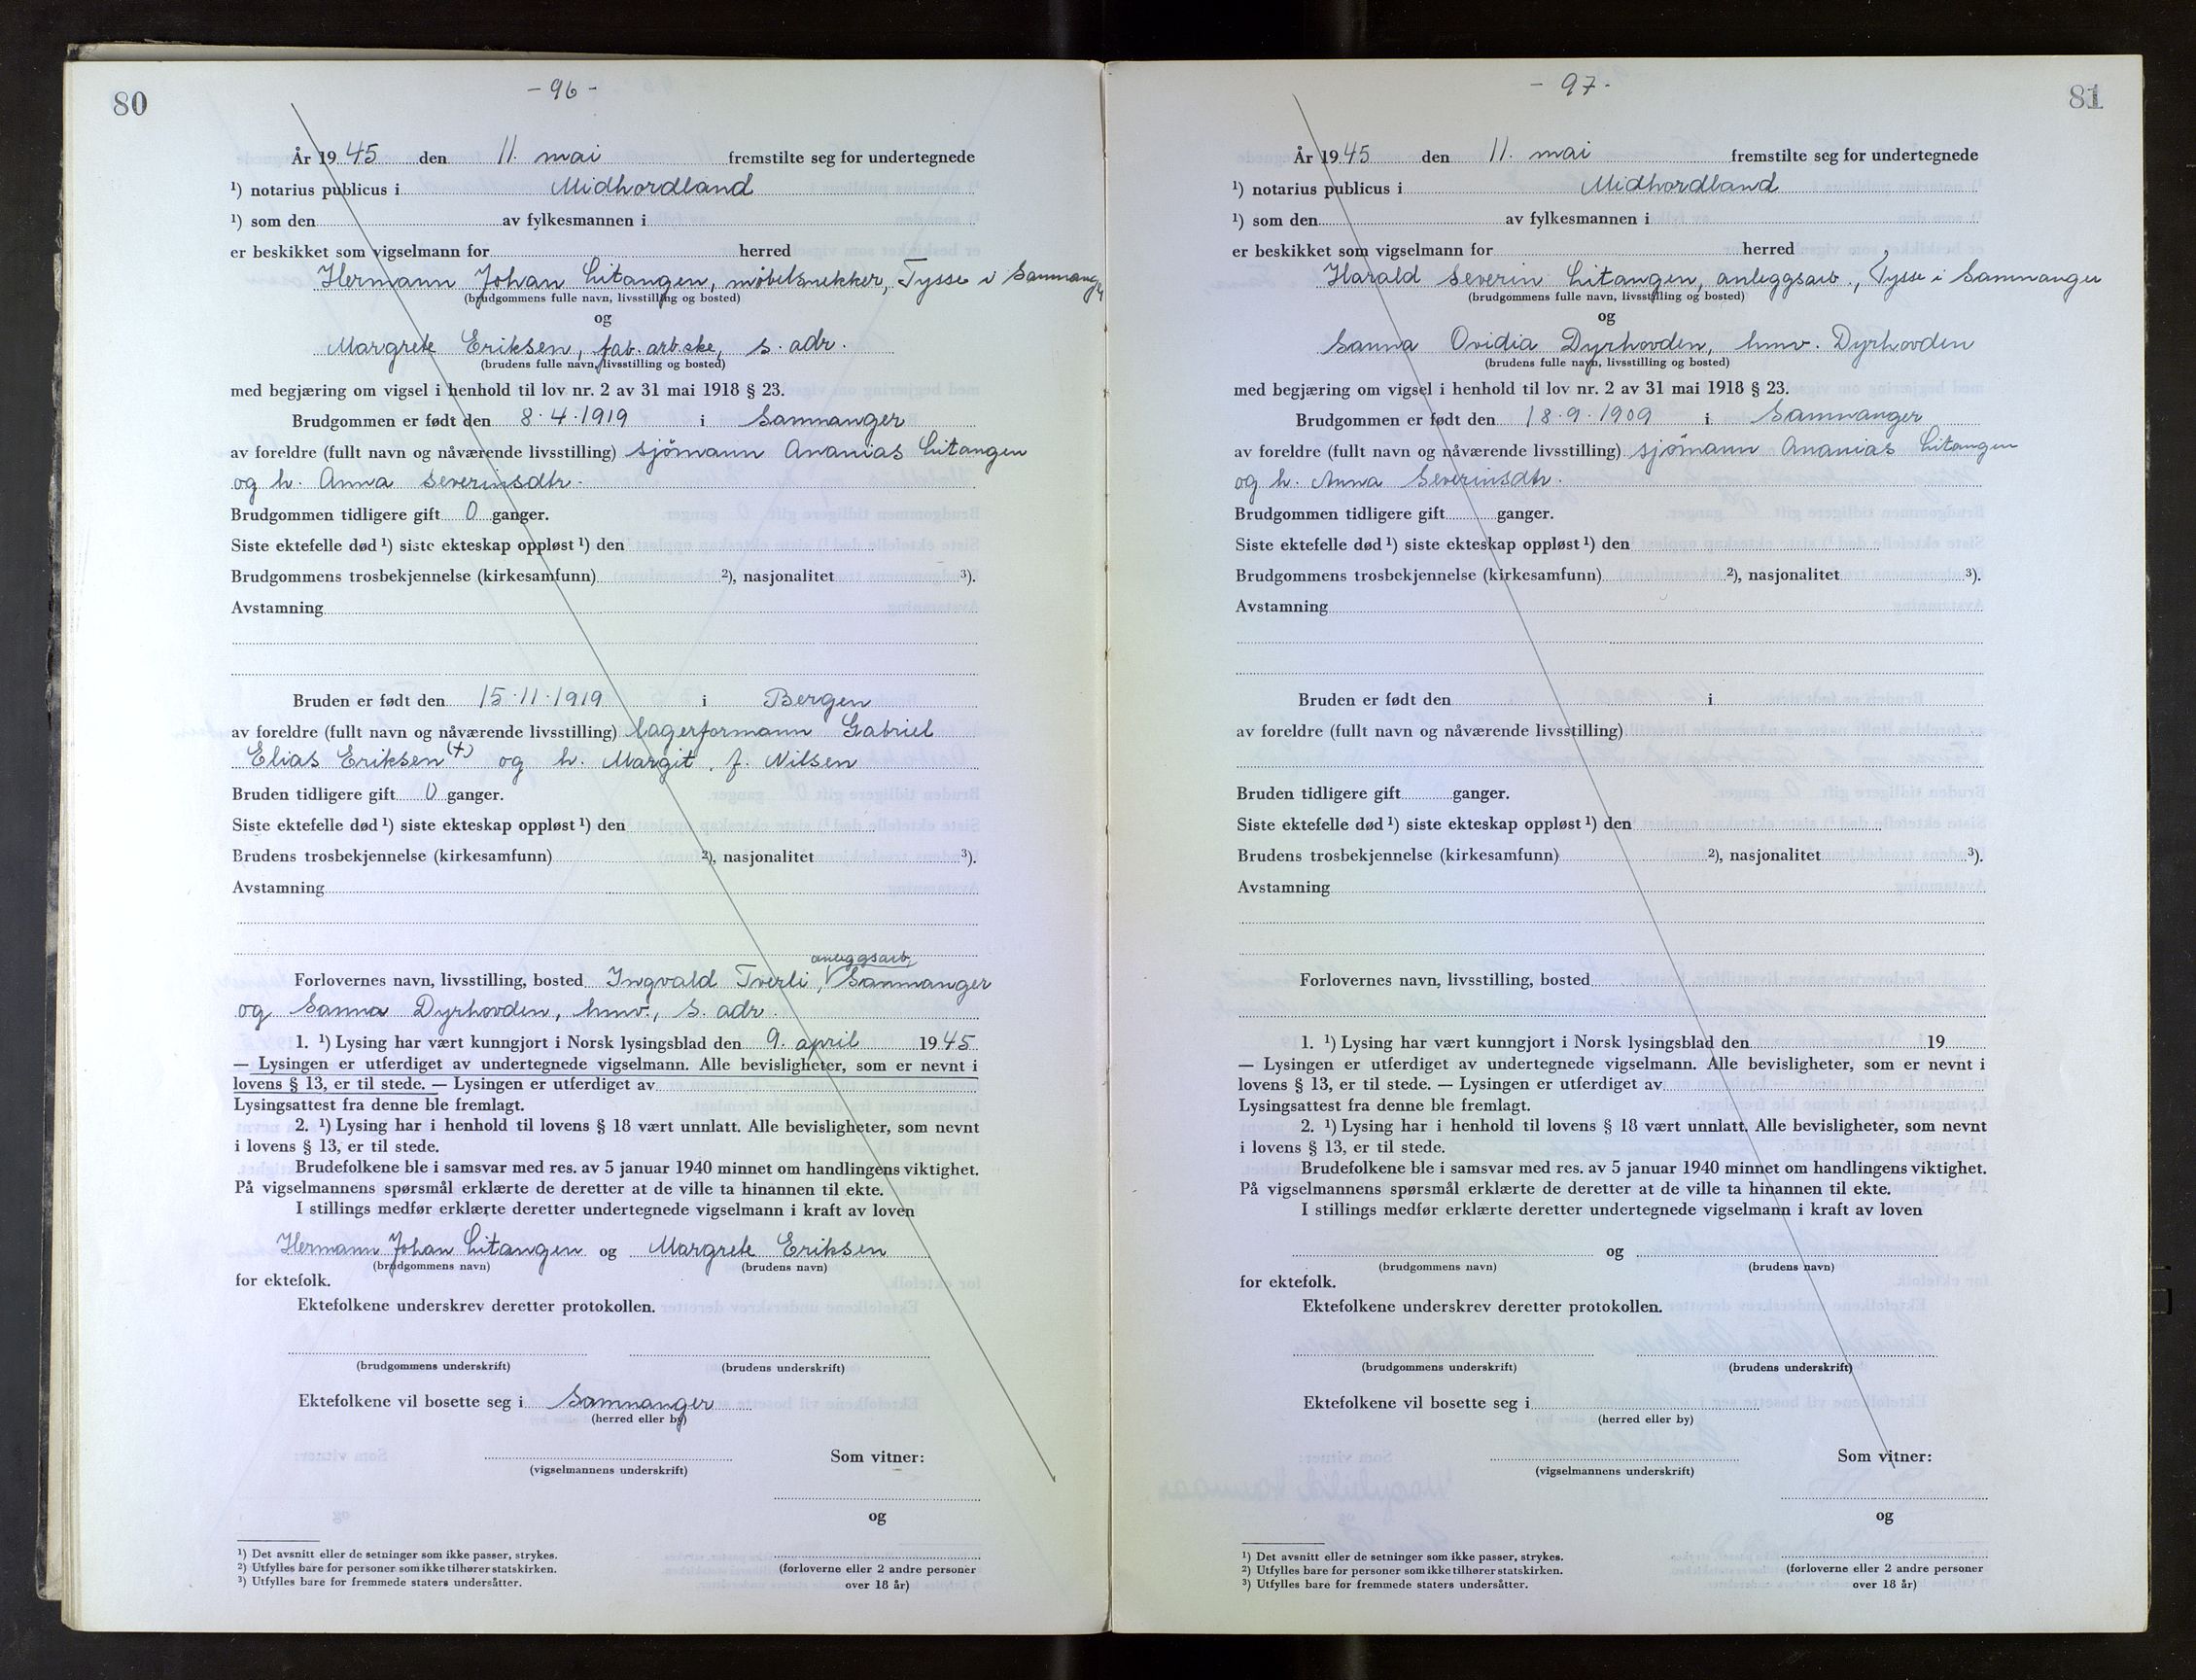 80
- 96 -
År 1945 den 11. mai fremstilte seg for undertegnede
¹) notarius publicus i Midhordland
¹) som den av fylkesmannen i
er beskikket som vigselmann for herred
Hermann Johan Litangen, møbelsnekker, Tysse i Samnanger
(brudgommens fulle navn, livsstilling og bosted)
og
Margrete Eriksen, fab.arb.ske, s. adr.
(brudens fulle navn, livsstilling og bosted)
med begjæring om vigsel i henhold til lov nr. 2 av 31 mai 1918 § 23.
Brudgommen er født den 8.4.1919 i Samnanger
av foreldre (fullt navn og nåværende livsstilling) sjömann Ananias Litangen
og h. Anna Severinsdtr.
Brudgommen tidligere gift 0 ganger.
Siste ektefelle død ¹) siste ekteskap oppløst ¹) den
Brudgommens trosbekjennelse (kirkesamfunn) ²), nasjonalitet ³).
Avstamning
Bruden er født den 15.11.1919 i Bergen
av foreldre (fullt navn og nåværende livsstilling) lagerformann Gabriel
Elias Eriksen (+) og h. Margit, f. Nilsen
Bruden tidligere gift 0 ganger.
Siste ektefelle død ¹) siste ekteskap oppløst ¹) den
Brudens trosbekjennelse (kirkesamfunn) ²), nasjonalitet ³).
Avstamning
anleggsarb.,
Forlovernes navn, livsstilling, bosted Ingvald Tverli, Samnanger
og Sanna Dyrhovden, hmv., s. adr.
1. ¹) Lysing har vært kunngjort i Norsk lysingsblad den 9. april 1945
— Lysingen er utferdiget av undertegnede vigselmann. Alle bevisligheter, som er nevnt i
lovens § 13, er til stede. — Lysingen er utferdiget av
Lysingsattest fra denne ble fremlagt.
2. ¹) Lysing har i henhold til lovens § 18 vært unnlatt. Alle bevisligheter, som nevnt
i lovens § 13, er til stede.
Brudefolkene ble i samsvar med res. av 5 januar 1940 minnet om handlingens viktighet.
På vigselmannens spørsmål erklærte de deretter at de ville ta hinannen til ekte.
I stillings medfør erklærte deretter undertegnede vigselmann i kraft av loven
Hermann Johan Litangen og Margrete Eriksen
(brudgommens navn) (brudens navn)
for ektefolk.
Ektefolkene underskrev deretter protokollen.
(brudgommens underskrift) (brudens underskrift)
Ektefolkene vil bosette seg i Samnanger
(herred eller by)
Som vitner:
(vigselmannens underskrift)
og
¹) Det avsnitt eller de setninger som ikke passer, strykes.
²) Utfylles bare for personer som ikke tilhører statskirken.
³) Utfylles bare for fremmede staters undersåtter.
(forloverne eller 2 andre personer
over 18 år)
81
- 97 -
År 1945 den 11. mai fremstilte seg for undertegnede
¹) notarius publicus i Midhordland
¹) som den av fylkesmannen i
er beskikket som vigselmann for herred
Harald Severin Litangen, anleggsarb., Tysse i Samnanger
(brudgommens fulle navn, livsstilling og bosted)
og
Sanna Ovidia Dyrhovden, hmv. Dyrhovden
(brudens fulle navn, livsstilling og bosted)
med begjæring om vigsel i henhold til lov nr. 2 av 31 mai 1918 § 23.
Brudgommen er født den 18.9.1909 i Samnanger
av foreldre (fullt navn og nåværende livsstilling) sjömann Ananias Litangen
og h. Anna Severinsdtr.
Brudgommen tidligere gift ganger.
Siste ektefelle død ¹) siste ekteskap oppløst ¹) den
Brudgommens trosbekjennelse (kirkesamfunn) ²), nasjonalitet ³).
Avstamning
Bruden er født den i
av foreldre (fullt navn og nåværende livsstilling)
Bruden tidligere gift ganger.
Siste ektefelle død ¹) siste ekteskap oppløst ¹) den
Brudens trosbekjennelse (kirkesamfunn) ²), nasjonalitet ³).
Avstamning
Forlovernes navn, livsstilling, bosted
1. ¹) Lysing har vært kunngjort i Norsk lysingsblad den 19
— Lysingen er utferdiget av undertegnede vigselmann. Alle bevisligheter, som er nevnt i
lovens § 13, er til stede. — Lysingen er utferdiget av
Lysingsattest fra denne ble fremlagt.
2. ¹) Lysing har i henhold til lovens § 18 vært unnlatt. Alle bevisligheter, som nevnt
i lovens § 13, er til stede.
Brudefolkene ble i samsvar med res. av 5 januar 1940 minnet om handlingens viktighet.
På vigselmannens spørsmål erklærte de deretter at de ville ta hinannen til ekte.
I stillings medfør erklærte deretter undertegnede vigselmann i kraft av loven
og
(brudgommens navn) (brudens navn)
for ektefolk.
Ektefolkene underskrev deretter protokollen.
(brudgommens underskrift) (brudens underskrift)
Ektefolkene vil bosette seg i
(herred eller by)
Som vitner:
(vigselmannens underskrift)
og
¹) Det avsnitt eller de setninger som ikke passer, strykes.
²) Utfylles bare for personer som ikke tilhører statskirken.
³) Utfylles bare for fremmede staters undersåtter.
(forloverne eller 2 andre personer
over 18 år)